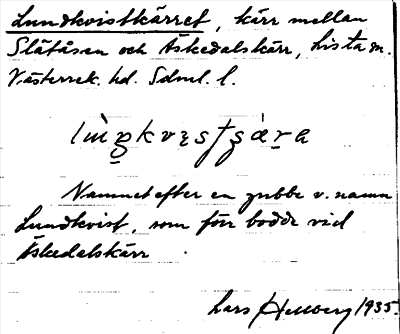 Lundkvistkärret, kärr mellan
Slätåsen och Äskedalskärr, Lista sn.
Västerrek. hd. Sdml. l.
Namnet efter en gubbe v. namn
Lundkvist, som förr bodde vid
Äskedalskärr.
Lars Hellberg 1935.